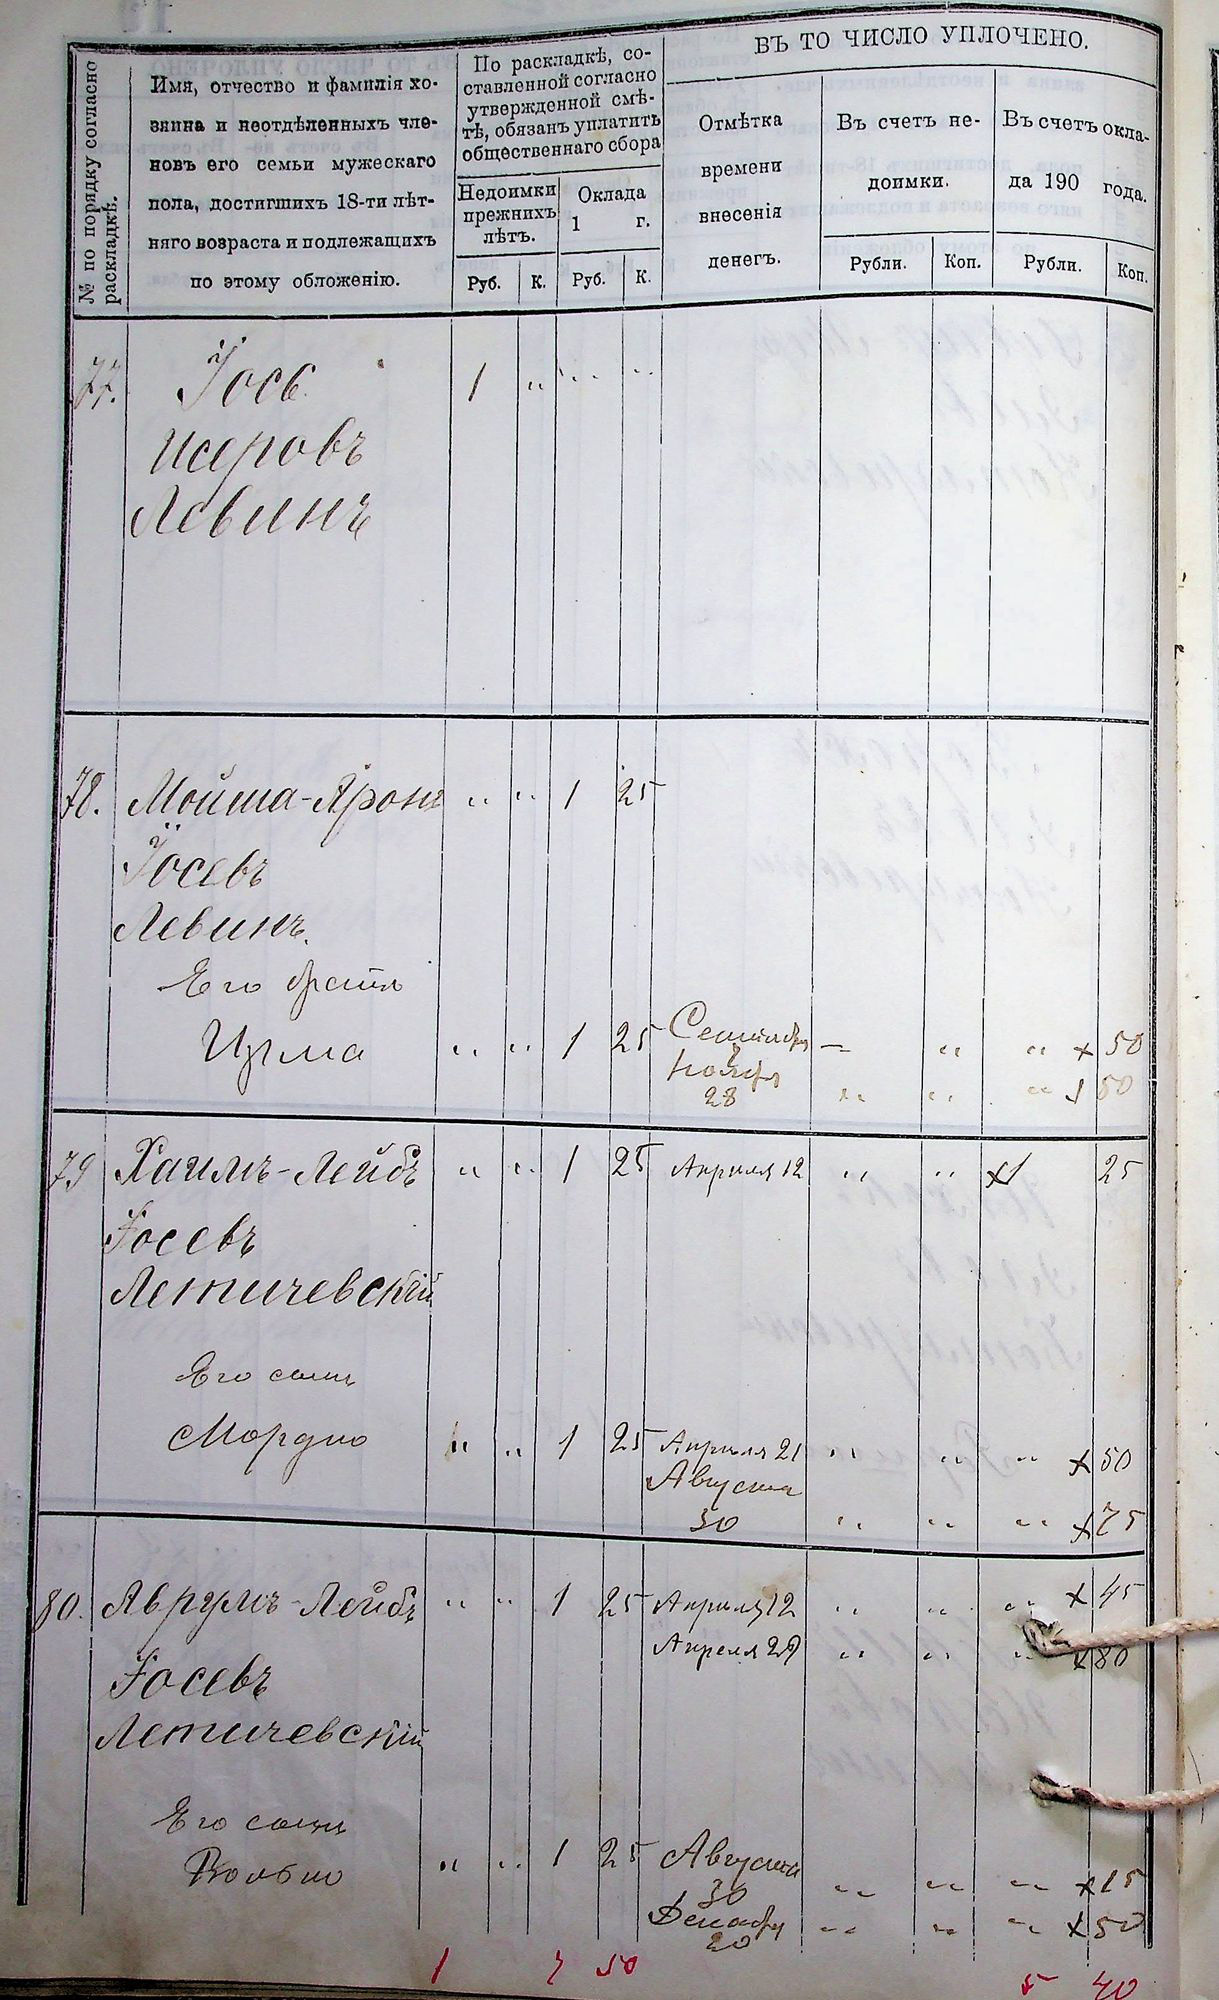 № по порядку согласно раскладкѣ.
Имя, отчество и фамилія хо-
зяина и неотдѣленныхъ чле-
новъ его семьи мужескаго
пола, достигшихъ 18-ти лѣт-
няго возраста и подлежащихъ
по этому обложенію.
По раскладкѣ, со-
ставленной согласно
утвержденной смѣ-
тѣ, обязанъ уплатить
общественнаго сбора
Недоимки
прежнихъ
лѣтъ.
Оклада
1 г.
Руб. К. Руб. К.
ВЪ ТО ЧИСЛО УПЛОЧЕНО.
Отмѣтка
времени
внесенія
денегъ.
Въ счетъ не-
доимки.
Въ счетъ окла-
да 190 года.
Рубли. Коп. Рубли. Коп.
77. Іось 1 " " "
Исеровъ
Левинъ
78. Мойша-Аронъ " " 1 25
Іосевъ
Левинъ.
Его братъ
" " 1 25 Сентября — " " x 50
Ноября
28 " " " 1 50
79 Хаимъ-Лейбъ " " 1 25 Апреля 12 " " x1 25
Іосевъ
Летичевскій
Его сынъ
Мордко " " 1 25 Апреля 21 " " " x 50
Августа
30 " " " x 75
80. Аврумъ-Лейбъ " " 1 25 Апреля 12 " " " x 45
Апреля 29 " " " x 80
Іосевъ
Летичевскій
Его сынъ
Волько " " 1 25 Августа
30 " " " x 15
Декабря
20 " " " x 50
1 7 50 5 40